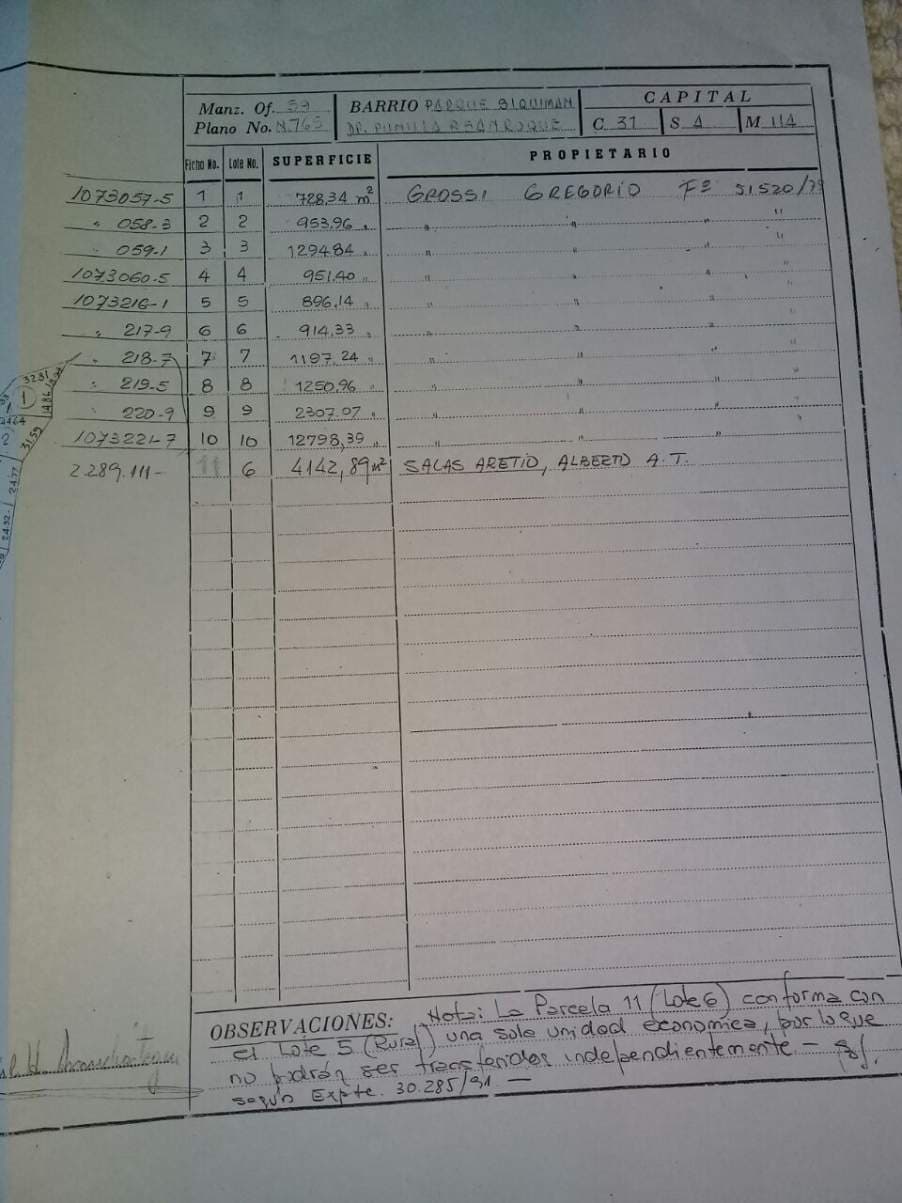 Manz. Of. 59 BARRIO PARQUE SIQUIMAN CAPITAL
Plano No. N.765 DP. PUNILLA P. SAN ROQUE C. 31 S 4 M 114
Ficha No. Lote No. SUPERFICIE PROPIETARIO
1073057-5 1 1 728,34 m² GROSSI GREGORIO Fº 51520/79
" 058-3 2 2 953,96 " " " " "
" 059-1 3 3 1294.84 " " " " "
1073060-5 4 4 951,40 " " " " "
1073216-1 5 5 896,14 " " " " "
" 217-9 6 6 914,33 " " " " "
" 218-7 7 7 1197,24 " " " " "
" 219-5 8 8 1250,96 " " " " "
" 220-9 9 9 2307.07 " " " " "
1073221-7 10 10 12798,39 " " " "
2289.111- 11 6 4142,89 m² SALAS ARETIO, ALBERTO A.T.
3231
1
1486
2464
2
31.59
24.77
24.92
OBSERVACIONES: Nota: La Parcela 11 (Lote 6) conforma con
el Lote 5 (Rural) una sola unidad economica, por lo que
no podrán ser transferidos independientemente -
según Expte. 30.285/91 -